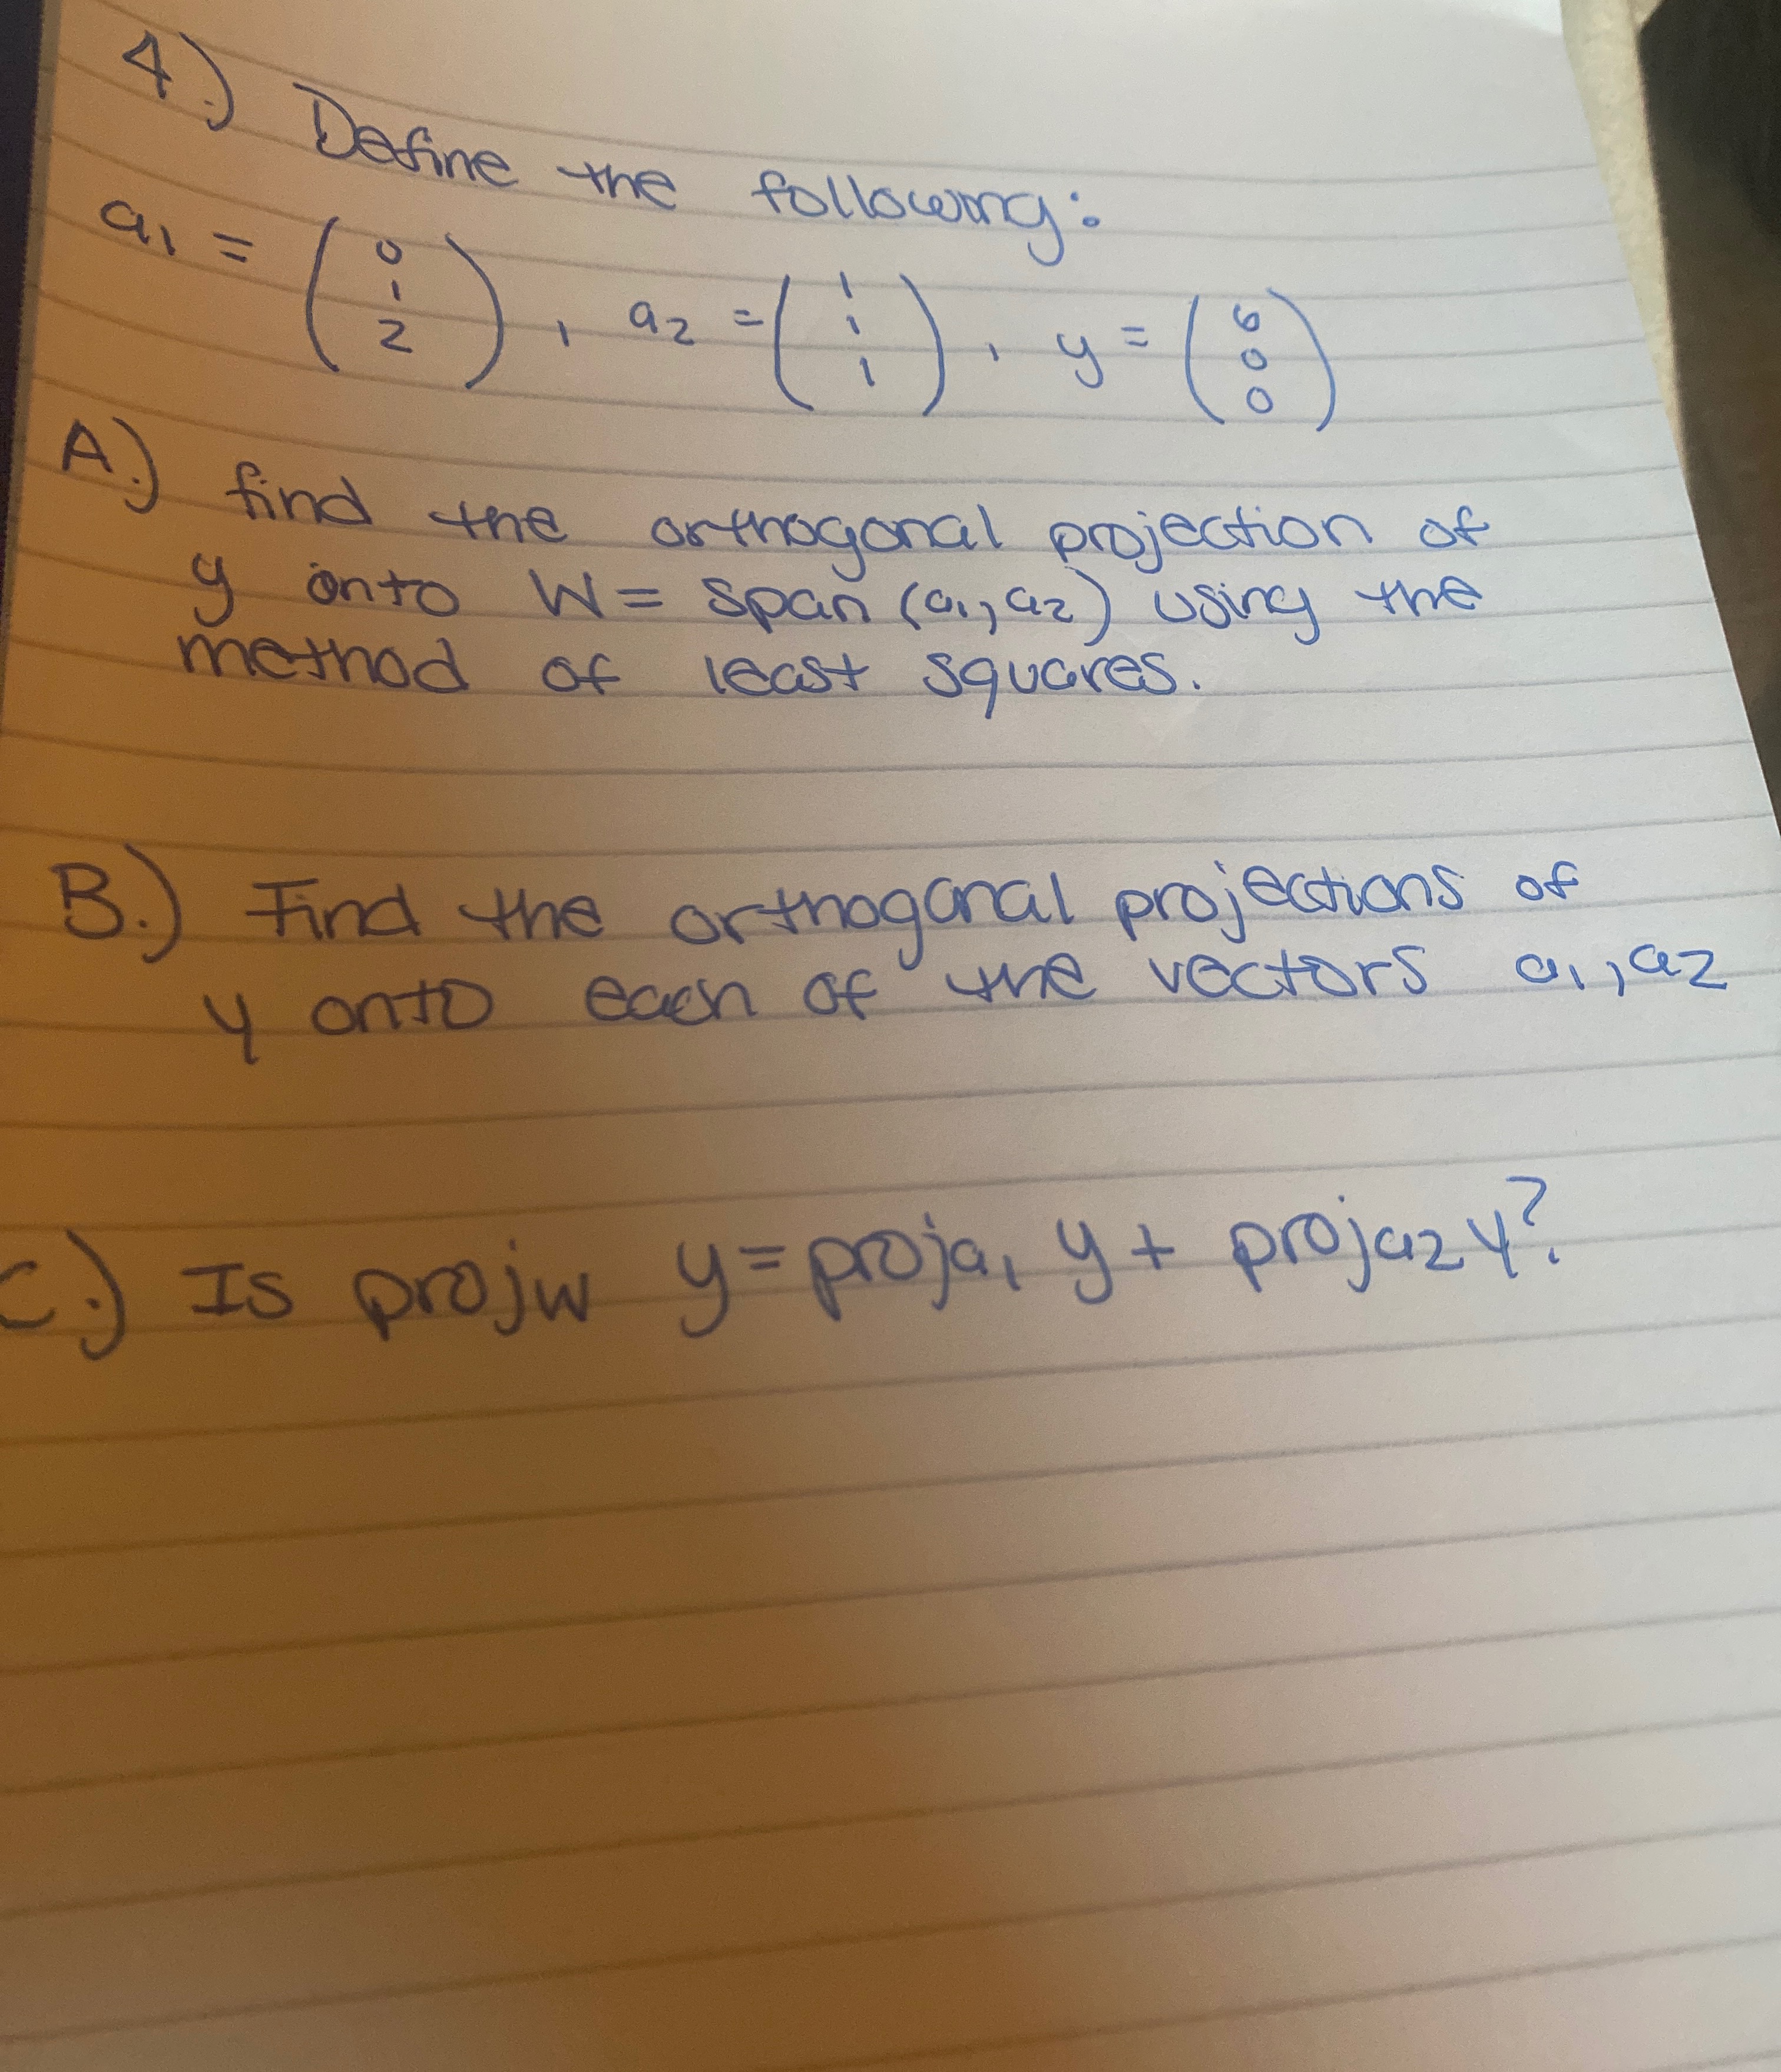 4.) Define the following:
a1 = (0 1 2), a2 = (1 1 1), y = (6 0 0)
A.) find the orthogonal projection of
y onto W = span (a1, a2) using the
method of least squares.
B.) Find the orthogonal projections of
y onto each of the vectors a1, a2
C.) Is projw y = proja1 y + proja2 y?